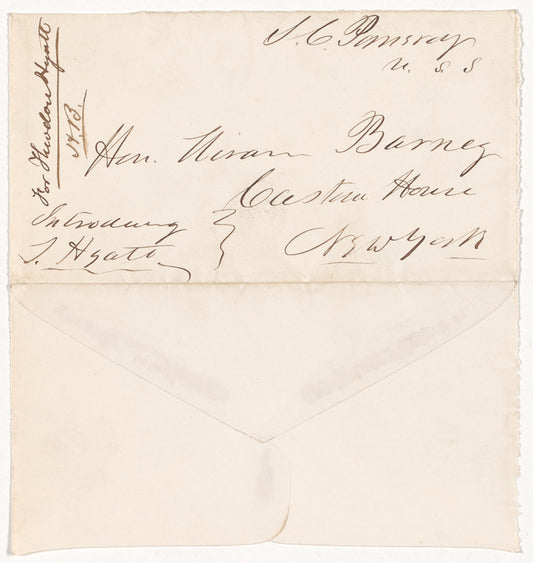 S. C. Pomeroy
U. S. S
Hon. Hiram Barney
Custom House
New York
Introducing
T. Hyatt
For Thaddeus Hyatt